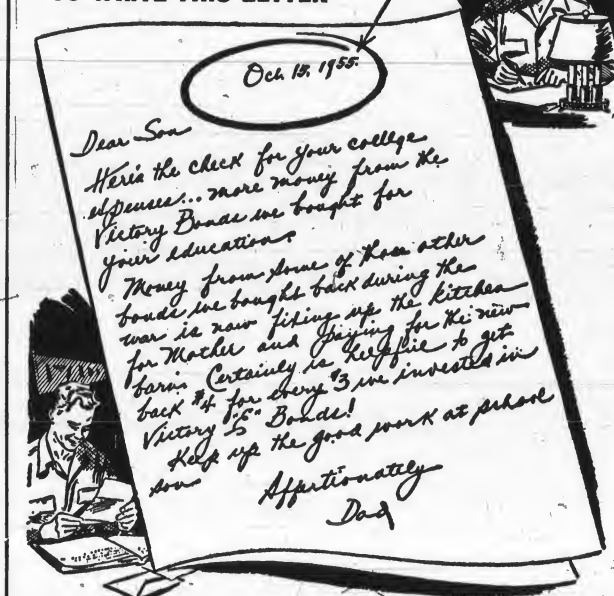 TO WRITE THIS LETTER
Oct. 15, 1955.
Dear Son
Here's the check for your college
expenses... more money from the
Victory Bonds we bought for
your education.
Money from some of those other
bonds we bought back during the
war is now fixing up the kitchen
for Mother and paying for the new
barn. Certainly is helpful to get
back $4 for every $3 we invested in
Victory "E" Bonds!
Keep up the good work at school
son
Affectionately
Dad